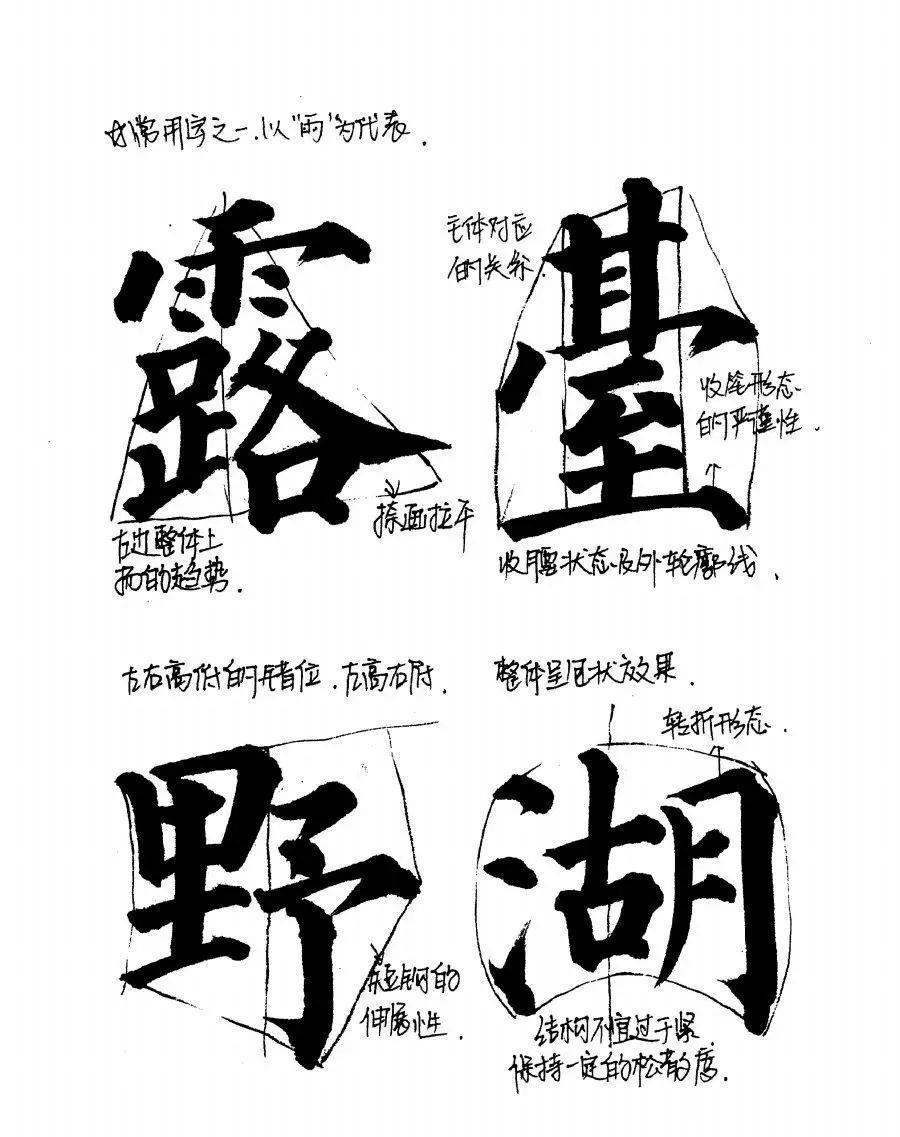 常用字之一.以"雨"为代表.
露
臺
主体对应
的关系.
收笔形态
的严谨性.
捺画拉平
左边整体上
扬的趋势.
收腰状态及外轮廓线.
左右高低的错位.左高右低.
整体呈 状效果.
转折形态.
野
湖
竖钩的
伸展性.
结构不宜过于紧.
保持一定的松散度.